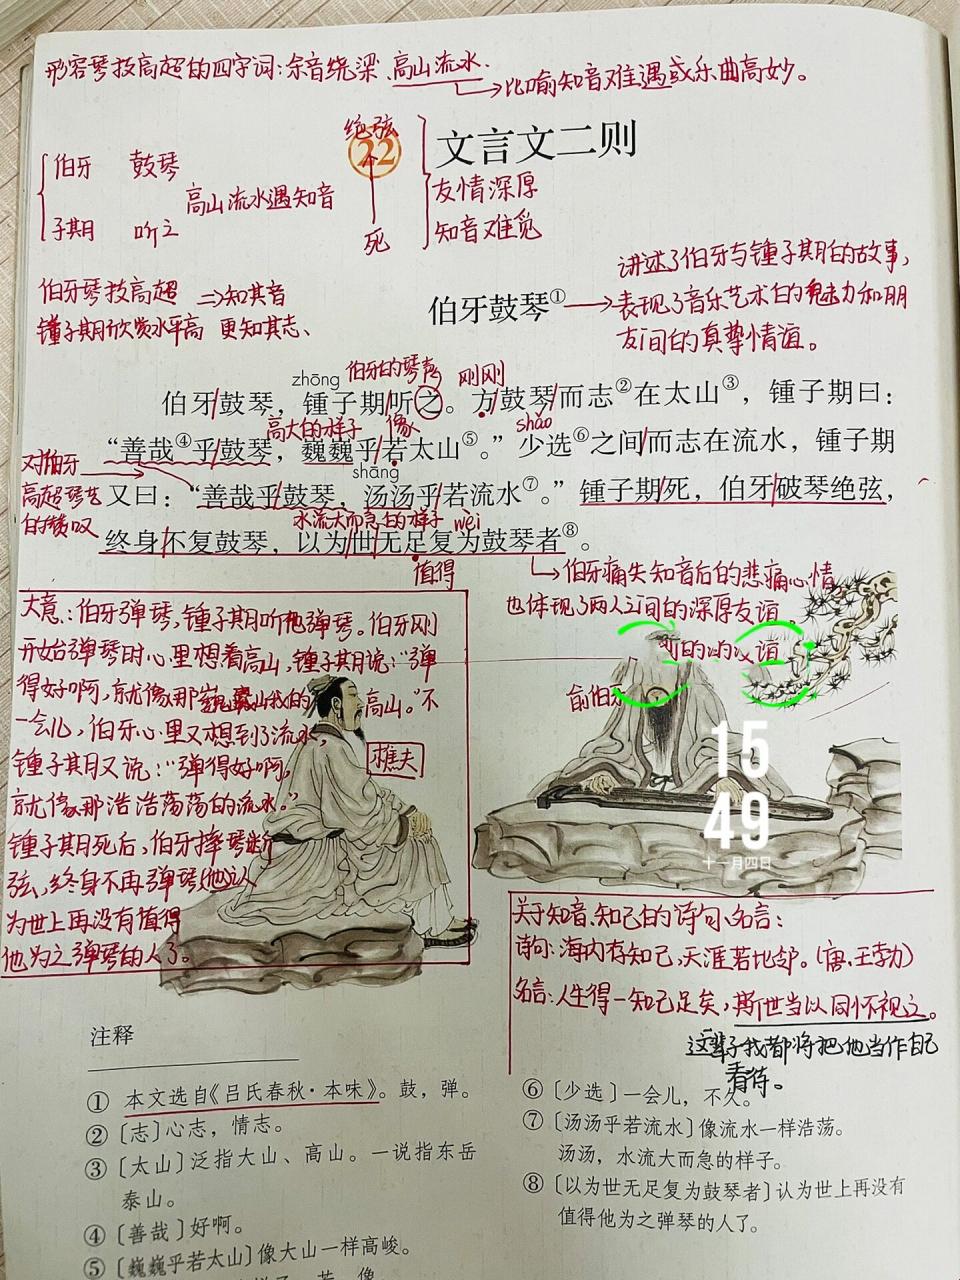 形容琴技高超的四字词:余音绕梁、高山流水.
比喻知音难遇或乐曲高妙。
绝弦
22
文言文二则
伯牙 鼓琴
高山流水遇知音
子期 听之
死
友情深厚
知音难觅
伯牙琴技高超 ⇒知其音
锺子期欣赏水平高 更知其志、
伯牙鼓琴①
讲述了伯牙与锺子期的故事,
表现了音乐艺术的魅力和朋
友间的真挚情谊。
zhōng 伯牙的琴声 刚刚
伯牙/鼓琴,锺子期/听之。方/鼓琴/而志②在太山③,锺子期曰:
高大的样子 像 shǎo
“善哉④乎/鼓琴,巍巍乎/若太山⑤。”少选⑥之间/而志在流水,锺子期
shāng
又曰:“善哉乎/鼓琴,汤汤乎/若流水⑦。”锺子期/死,伯牙/破琴绝弦,
水流大而急的样子 wèi
终身/不复鼓琴,以为/世/无足复为鼓琴者⑧。
值得
对伯牙
高超琴艺
的赞叹
伯牙痛失知音后的悲痛心情
也体现了两人之间的深厚友谊
大意:伯牙弹琴,锺子期听他弹琴。伯牙刚
开始弹琴时心里想着高山,锺子期说:“弹
得好啊,就像那巍巍 高山。”不
一会儿,伯牙心里又想到了流水,
锺子期又说:“弹得好啊,
就像那浩浩荡荡的流水。”
锺子期死后,伯牙摔琴断
弦,终身不再弹琴,他认
为世上再没有值得
他为之弹琴的人了。
樵夫
俞伯
15
49
十一月四日
关于知音、知己的诗句、名言:
诗句:海内存知己,天涯若比邻。(唐.王勃)
名言:人生得一知己足矣,斯世当以同怀视之。
这辈子我都将把他当作自己
看待。
注释
① 本文选自《吕氏春秋·本味》。鼓,弹。
② 〔志〕心志,情志。
③ 〔太山〕泛指大山、高山。一说指东岳
泰山。
④ 〔善哉〕好啊。
⑤ 〔巍巍乎若太山〕像大山一样高峻。
⑥ 〔少选〕一会儿,不久。
⑦ 〔汤汤乎若流水〕像流水一样浩荡。
汤汤,水流大而急的样子。
⑧ 〔以为世无足复为鼓琴者〕认为世上再没有
值得他为之弹琴的人了。